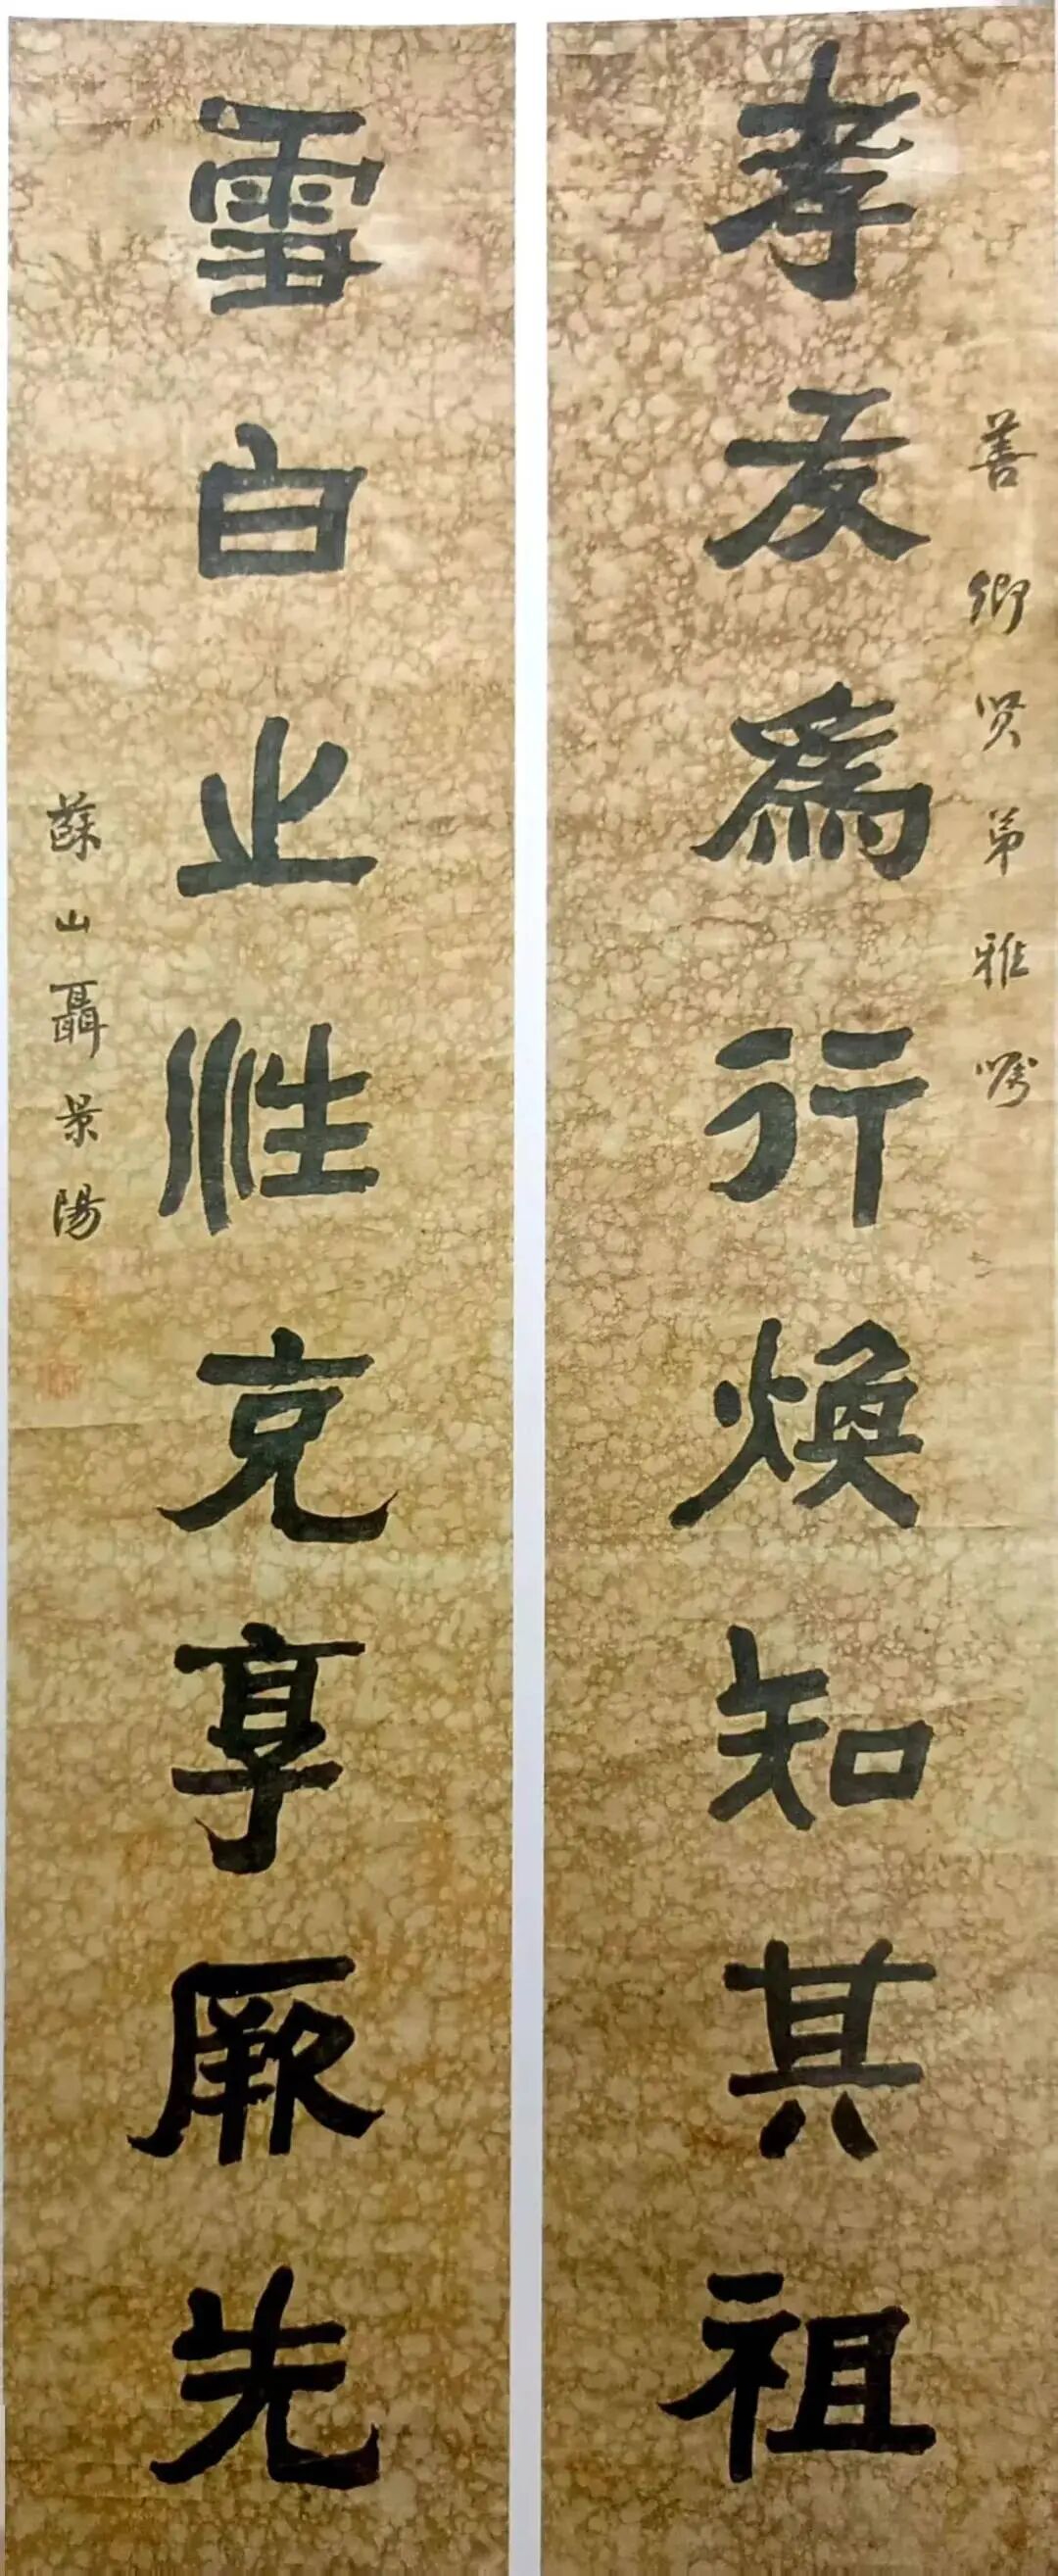 善卿贤弟雅嘱
孝友為行煥知其祖
雪白止性克享厥先
蘇山聶景陽